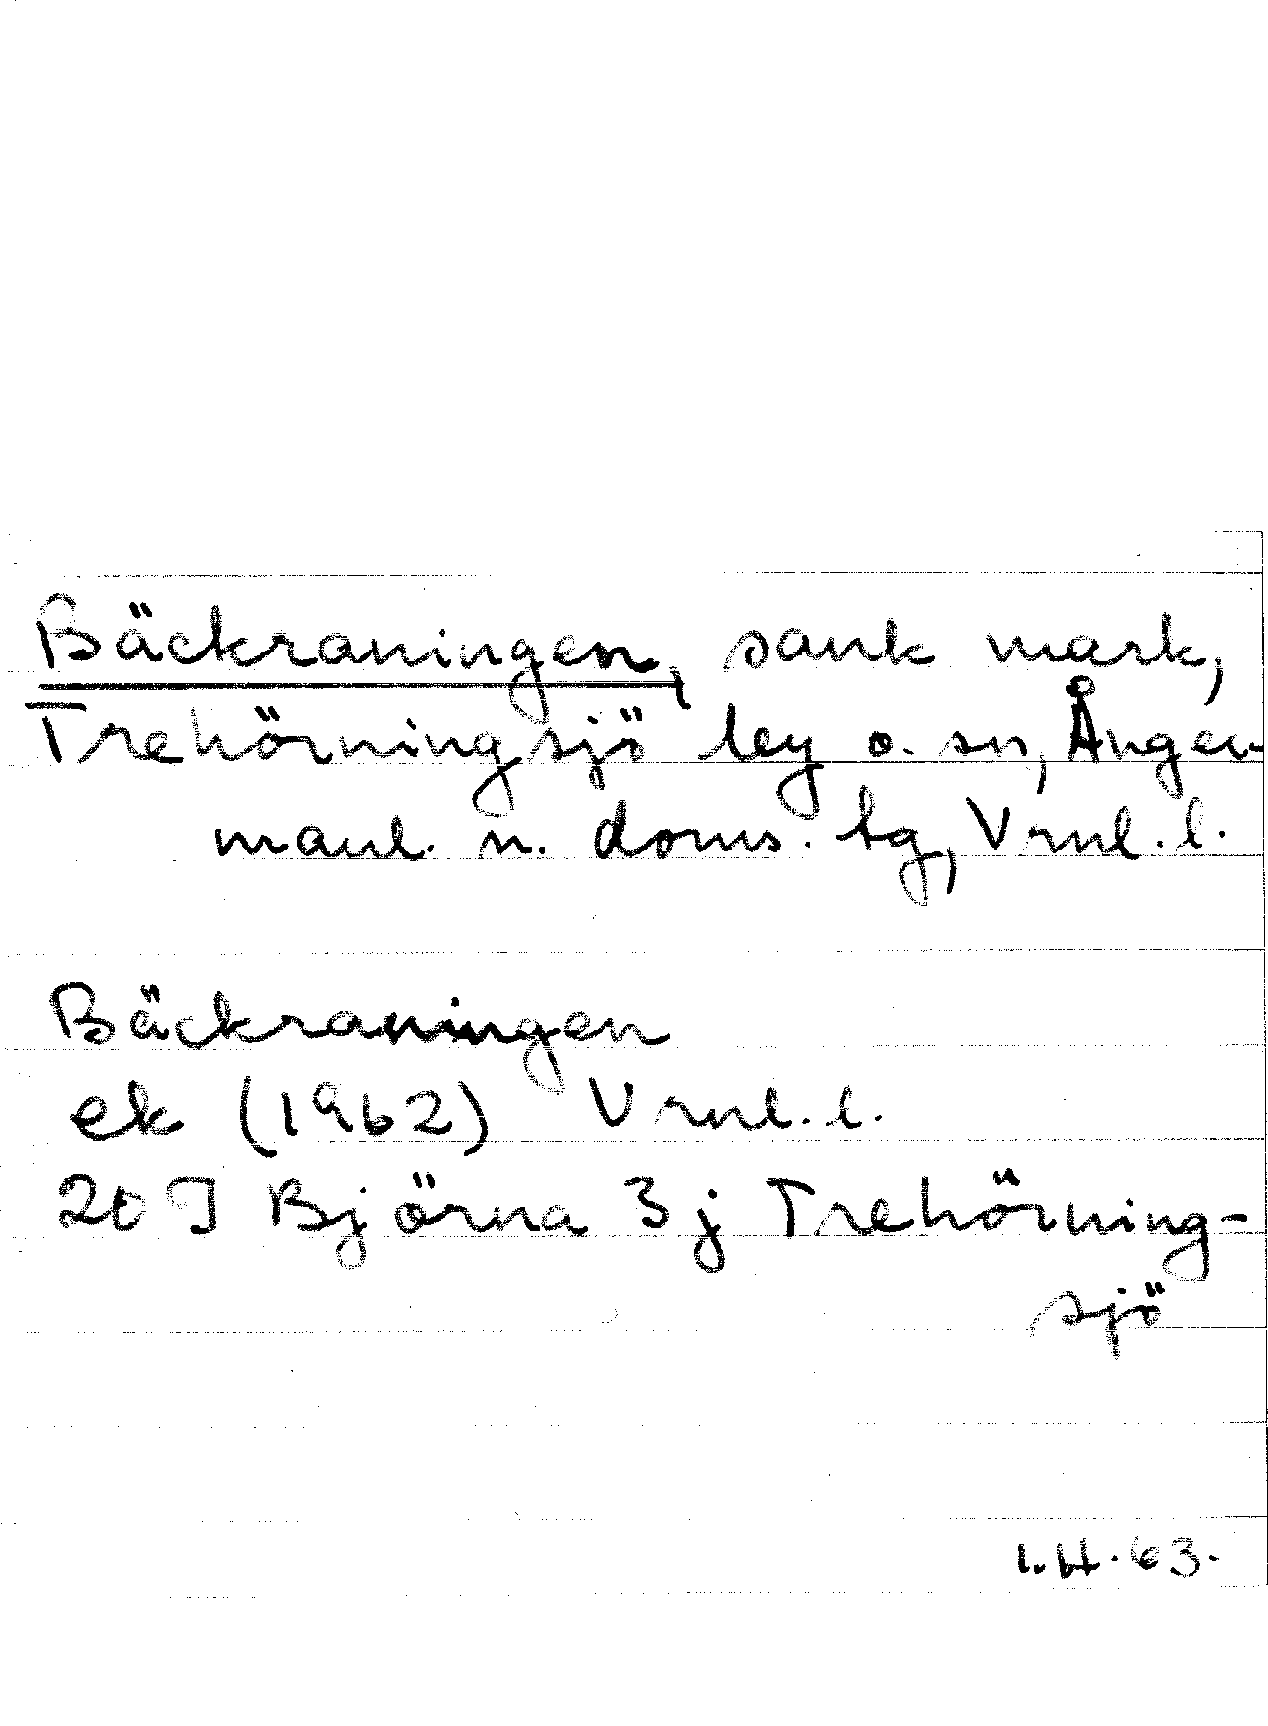 Bäckraningen, sank mark,
Trehörningsjö by o. sn, Ånger-
manl. n. doms. tg, Vrnl. l.
Bäckraningen
ek (1962) Vrnl. l.
20 I Björna 3 j Trehörning-
sjö
I.H. 63.